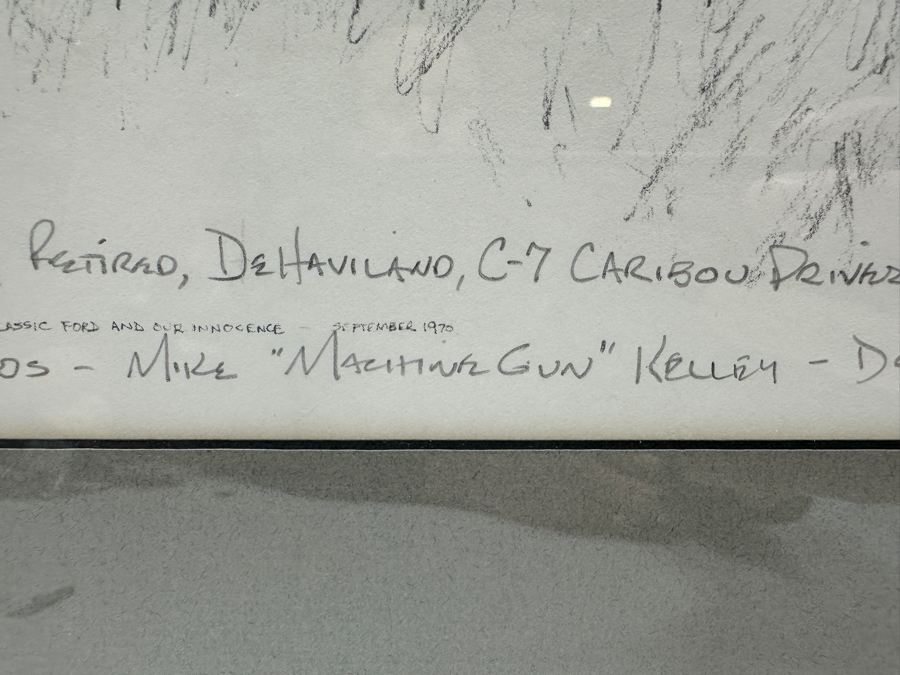 RETIRED, DEHAVILAND, C-7 CARIBOU DRIVER
LASSIC FORD AND OUR INNOCENCE – SEPTEMBER 1970
OS – MIKE "MACHINE GUN" KELLEY – DE